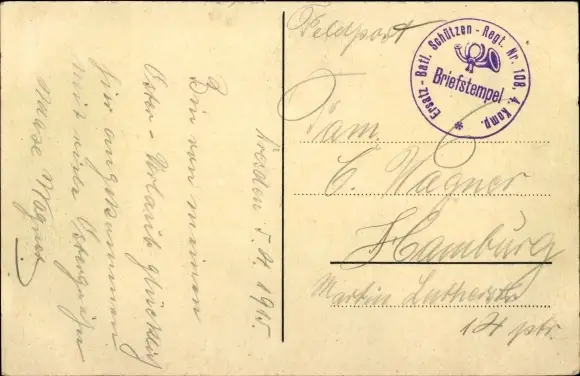 Feldpost
Ersatz-Batl. Schützen-Regt. Nr. 108. 4. Komp.
Briefstempel
Fam.
C. Wagner
Hamburg
Martin Lutherstr.
14 ptr.
Dresden 5.4.1915.
Bin von meinem
Oster-Urlaub glücklich
hier angekommen
mit viele Ostergrüße
Wagner